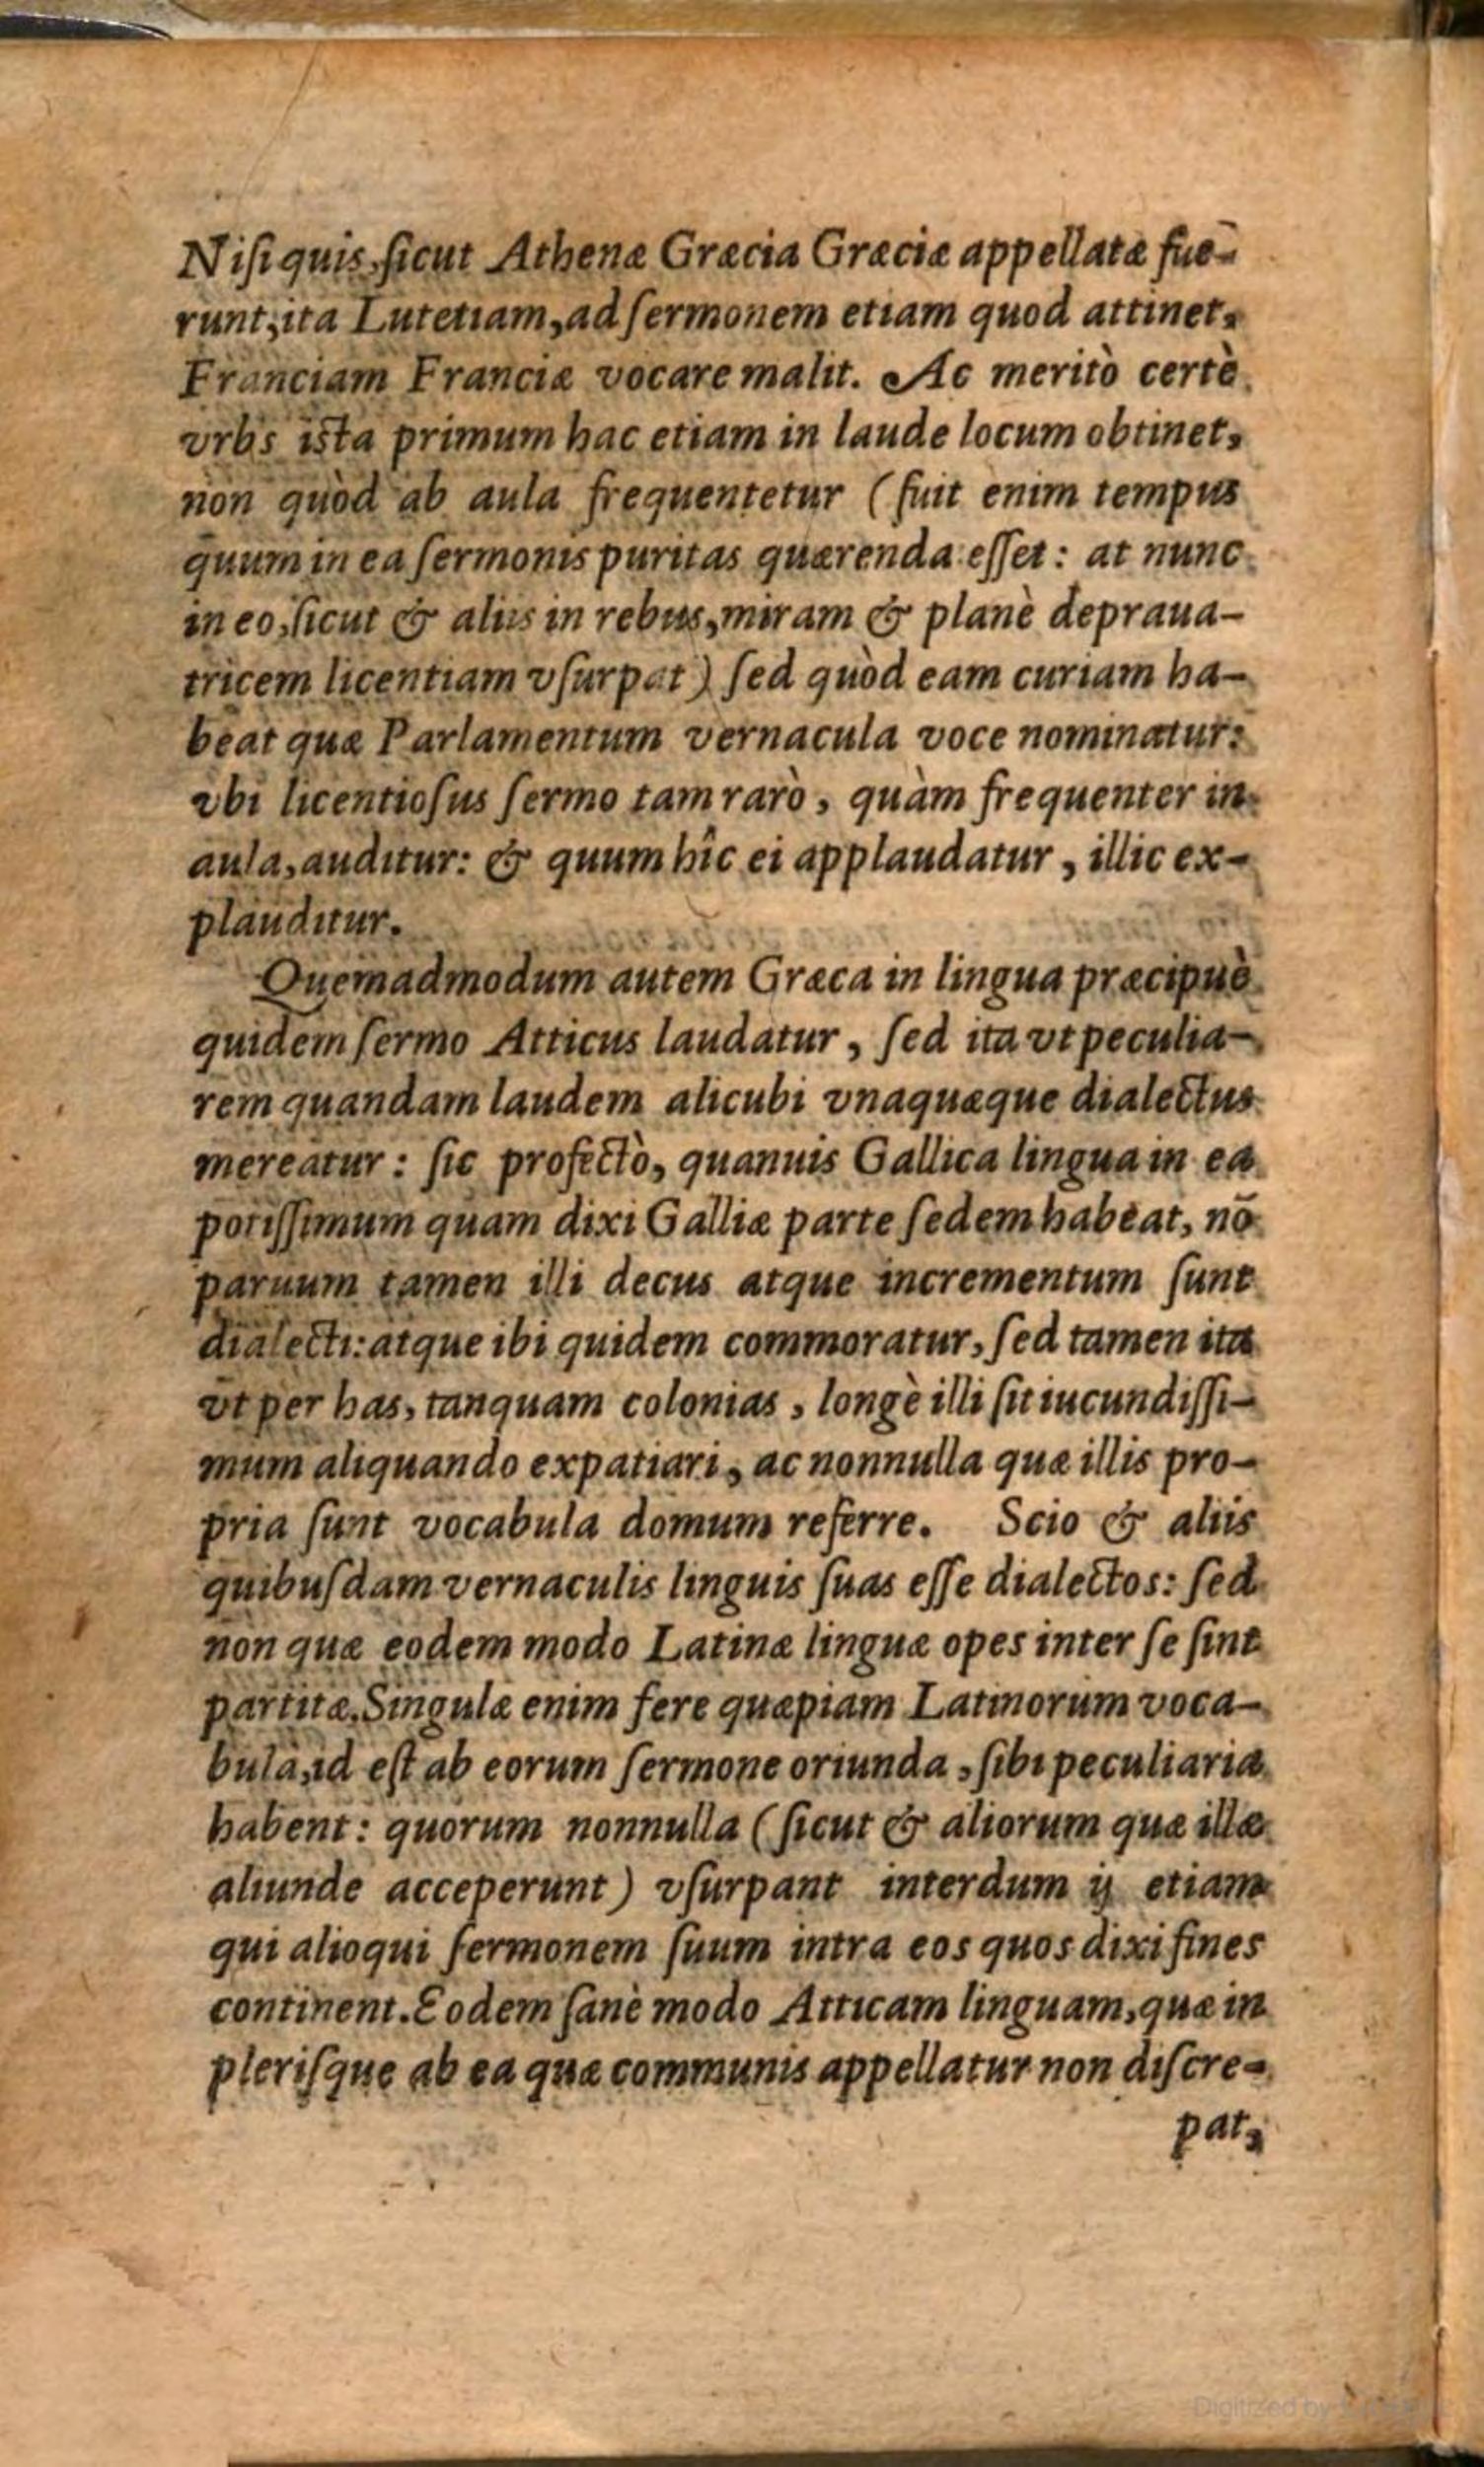 Niſi quis, ſicut Athenæ Græcia Græciæ appellatæ fue-
runt, ita Lutetiam, ad ſermonem etiam quod attinet,
Franciam Franciæ vocare malit. Ac meritò certè
vrbs iſta primum hac etiam in laude locum obtinet,
non quòd ab aula frequentetur (fuit enim tempus
quum in ea ſermonis puritas quærenda eſſet: at nunc
in eo, ſicut & aliis in rebus, miram & planè depraua-
tricem licentiam vſurpat) ſed quòd eam curiam ha-
beat quæ Parlamentum vernacula voce nominatur:
vbi licentioſus ſermo tam rarò, quàm frequenter in
aula, auditur: & quum hîc ei applaudatur, illic ex-
plauditur.
Quemadmodum autem Græca in lingua præcipuè
quidem ſermo Atticus laudatur, ſed ita vt peculia-
rem quandam laudem alicubi vnaquæque dialectus
mereatur: ſic profectò, quanuis Gallica lingua in ea
potiſſimum quam dixi Galliæ parte ſedem habeat, nō
paruum tamen illi decus atque incrementum ſunt
dialecti: atque ibi quidem commoratur, ſed tamen ita
vt per has, tanquam colonias, longè illi ſit iucundiſſi-
mum aliquando expatiari, ac nonnulla quæ illis pro-
pria ſunt vocabula domum referre. Scio & aliis
quibuſdam vernaculis linguis ſuas eſſe dialectos: ſed
non quæ eodem modo Latinæ linguæ opes inter ſe ſint
partitæ. Singulæ enim fere quæpiam Latinorum voca-
bula, id eſt ab eorum ſermone oriunda, ſibi peculiaria
habent: quorum nonnulla (ſicut & aliorum quæ illæ
aliunde acceperunt) vſurpant interdum ij etiam
qui alioqui ſermonem ſuum intra eos quos dixi fines
continent. Eodem ſanè modo Atticam linguam, quæ in
pleriſque ab ea quæ communis appellatur non diſcre-
pat,
Digitized by Google